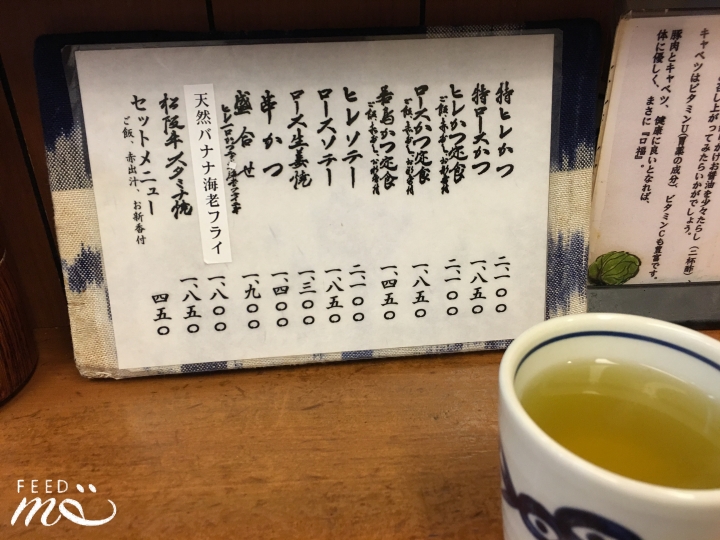 特ヒレかつ 二、一〇〇
特ロースかつ 一、八五〇
ヒレかつ定食 二、一〇〇
ご飯、赤出し、お新香付
ロースかつ定食 一、八五〇
ご飯、赤出し、お新香付
かつ定食 一、四五〇
ご飯、赤出し、お新香付
ヒレソテー 二、一〇〇
ロースソテー 一、八五〇
ロース生姜焼 一、三〇〇
串かつ 一、四〇〇
盛合せ 一、九〇〇
天然バナナ海老フライ 一、八〇〇
松阪牛スタミナ焼 一、八五〇
セットメニュー 四五〇
ご飯、赤出汁、お新香付
キャベツはビタミンU(胃薬の成分)、ビタミンCも豊富です。
豚肉とキャベツ、健康に良いとなれば、
体に優しく、まさに『口福』。
FEED
me